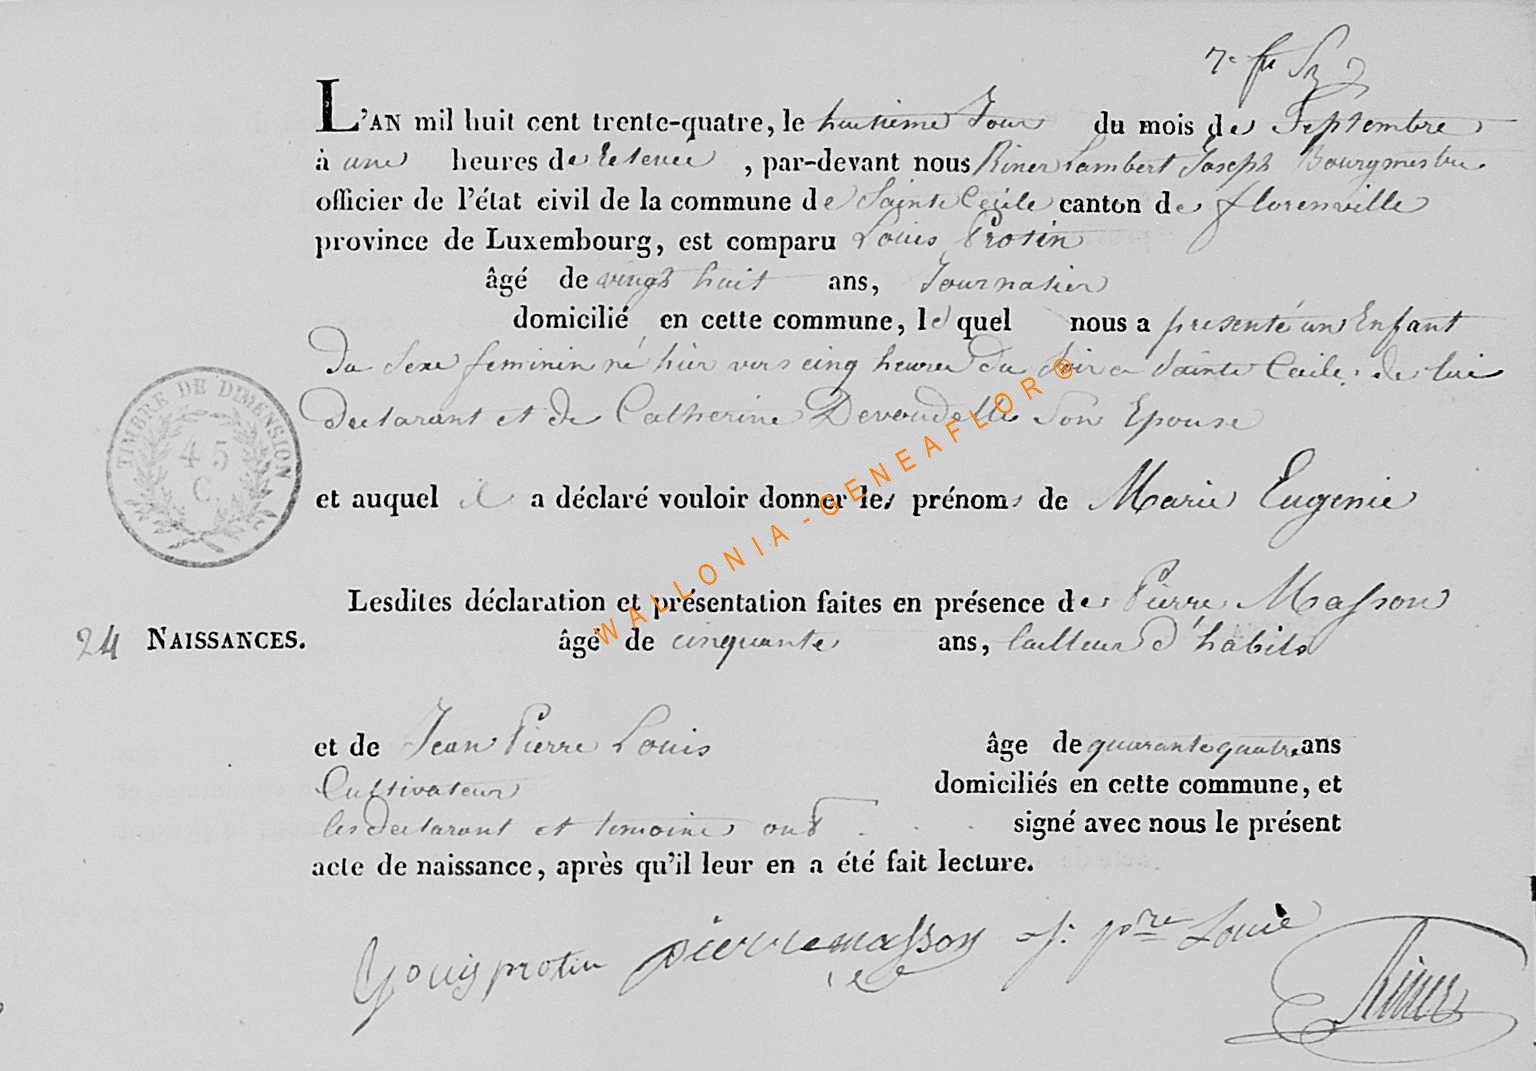 7e
L'AN mil huit cent trente-quatre, le huitieme Jour du mois de Septembre
à une heures de relevée, par-devant nous Riner Lambert Joseph Bourgmestre
officier de l'état civil de la commune de Sainte Cecile canton de florenville
province de Luxembourg, est comparu Louis Protin
âgé de vingt huit ans, Journalier
domicilié en cette commune, le quel nous a presenté un Enfant
du Sexe feminin né hier vers cinq heures du Soir a Sainte Cecile, de lui
declarant et de Catherine Devoudelle Son Epouse
TIMBRE DE DIMENSION
45
C.
et auquel il a déclaré vouloir donner les prénoms de Marie Eugenie
Lesdites déclaration et présentation faites en présence de Pierre Masson
24 NAISSANCES. âgé de cinquante ans, tailleur d'habits
et de Jean Pierre Louis âge de quarante quatre ans
Cultivateur domiciliés en cette commune, et
les declarant et temoins ont signé avec nous le présent
acte de naissance, après qu'il leur en a été fait lecture.
Louis protin pierre masson J: pre Louis
Riner
WALLONIA - GENEAFLOR ©